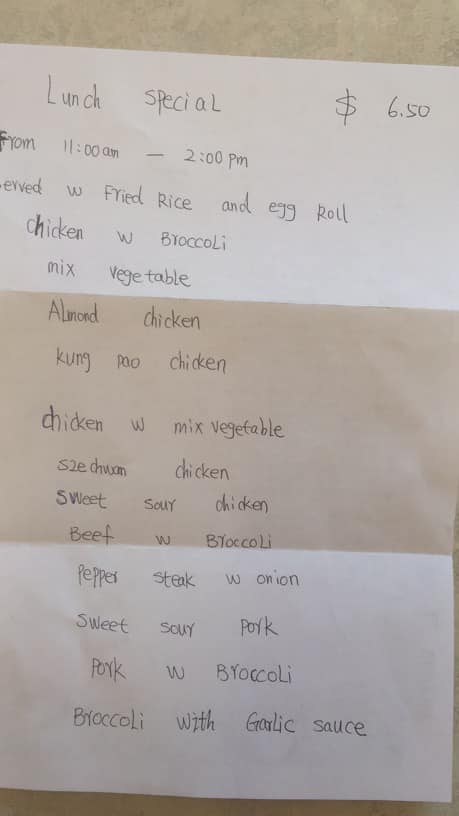 Lunch special $ 6.50
From 11:00am — 2:00 pm
erved w Fried Rice and egg Roll
chicken w Broccoli
mix vegetable
Almond chicken
kung pao chicken
chicken w mix vegetable
szechuan chicken
sweet sour chicken
Beef w Broccoli
Pepper steak w onion
sweet sour pork
pork w Broccoli
Broccoli with Garlic sauce